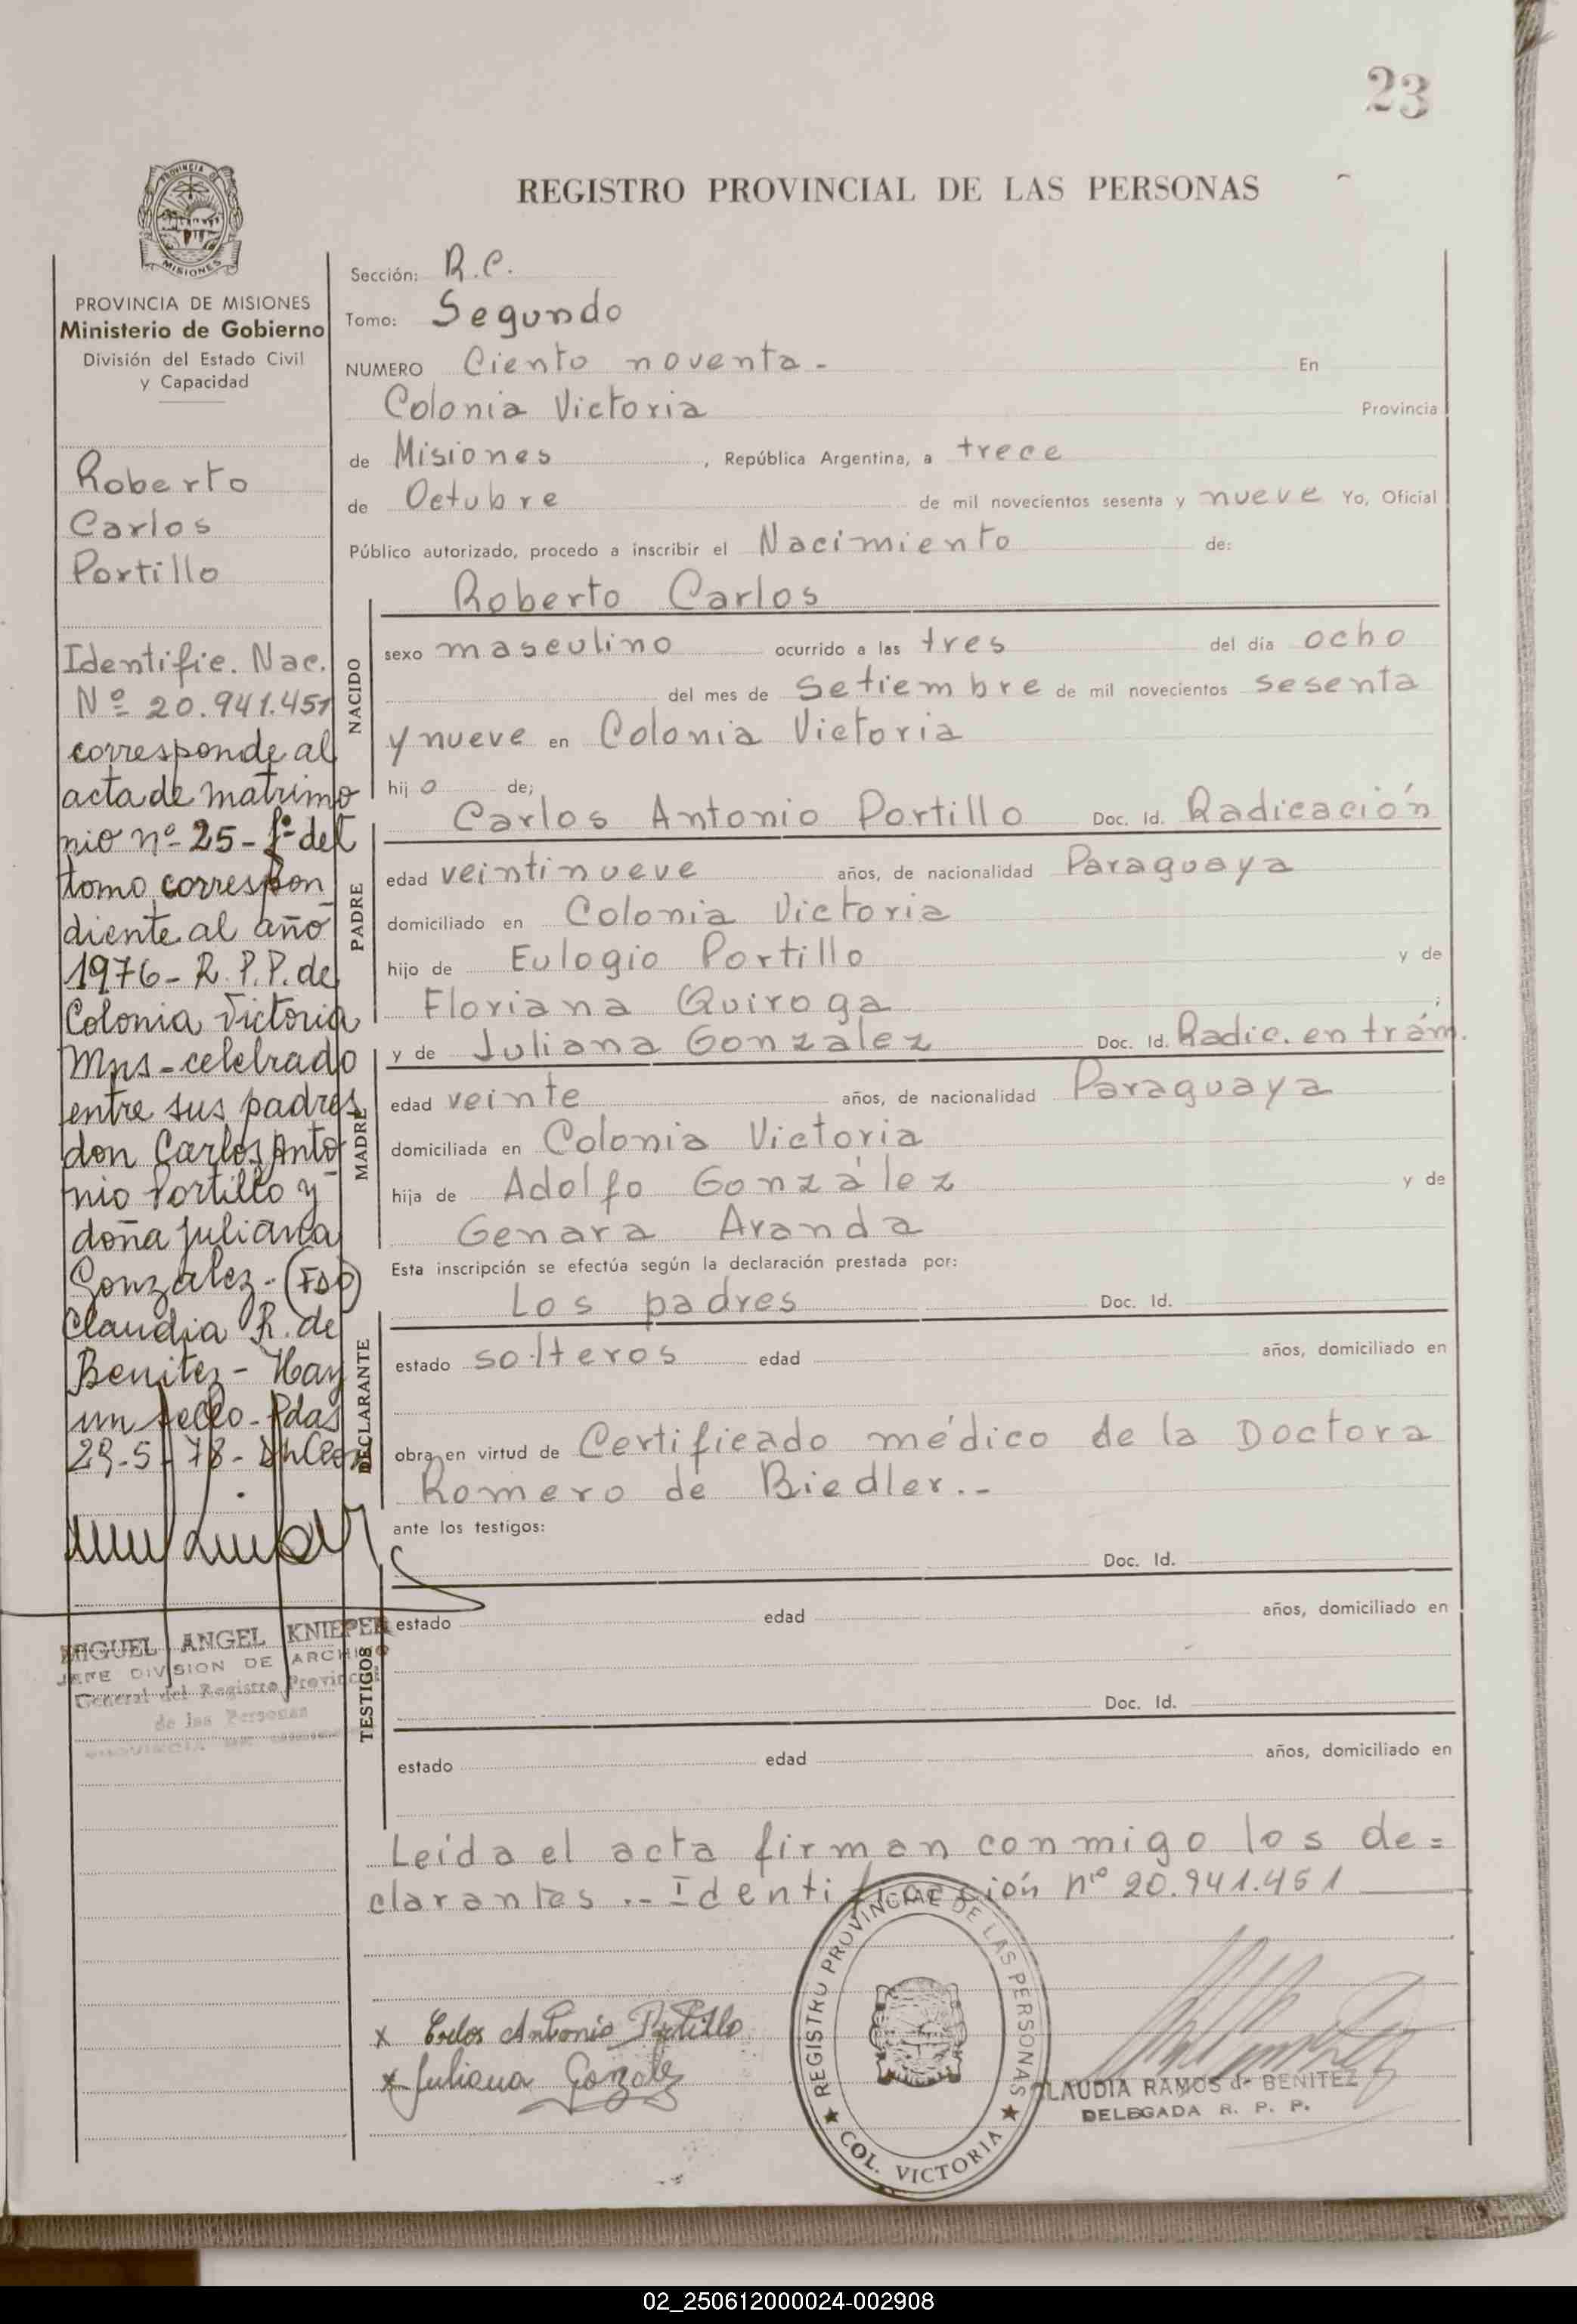 23
REGISTRO PROVINCIAL DE LAS PERSONAS
PROVINCIA DE
MISIONES
PROVINCIA DE MISIONES
Ministerio de Gobierno
División del Estado Civil
y Capacidad
Roberto
Carlos
Portillo
Identific. Nac.
Nº 20.941.451
corresponde al
acta de matrimo
nio nº 25 - fº del
tomo correspon
diente al año
1976 - R. P. P. de
Colonia Victoria
Mns - celebrado
entre sus padres
don Carlos Anto
nio Portillo y
doña Juliana
Gonzalez - (Fdo)
Claudia R. de
Benitez - Hay
un sello - Pdas
29-5-78 -
MIGUEL ANGEL KNIEPER
JEFE DIVISION DE ARCHIVO
General del Registro Provincial
de las Personas
PROVINCIA DE
Sección: R.C.
Tomo: Segundo
NUMERO Ciento noventa - En
Colonia Victoria Provincia
de Misiones , República Argentina, a trece
de Octubre de mil novecientos sesenta y nueve Yo, Oficial
Público autorizado, procedo a inscribir el Nacimiento de:
NACIDO
Roberto Carlos
sexo masculino ocurrido a las tres del día ocho
del mes de Setiembre de mil novecientos sesenta
y nueve en Colonia Victoria
hij o de;
PADRE
Carlos Antonio Portillo Doc. Id. Radicación
edad veintinueve años, de nacionalidad Paraguaya
domiciliado en Colonia Victoria
hijo de Eulogio Portillo y de
Floriana Quiroga ;
MADRE
y de Juliana Gonzalez Doc. Id. Radic. en trám.
edad veinte años, de nacionalidad Paraguaya
domiciliada en Colonia Victoria
hija de Adolfo González y de
Genara Aranda
Esta inscripción se efectúa según la declaración prestada por:
DECLARANTE
Los padres Doc. Id.
estado solteros edad años, domiciliado en
obra en virtud de Certificado médico de la Doctora
Romero de Biedler.-
ante los testigos:
TESTIGOS
Doc. Id.
estado edad años, domiciliado en
Doc. Id.
estado edad años, domiciliado en
Leída el acta firman conmigo los de=
clarantes .- Identificación nº 20.941.451
x Carlos Antonio Portillo
x Juliana Gonzalez
REGISTRO PROVINCIAL DE LAS PERSONAS
COL. VICTORIA
CLAUDIA RAMOS de BENITEZ
DELEGADA R. P. P.
02_250612000024-002908